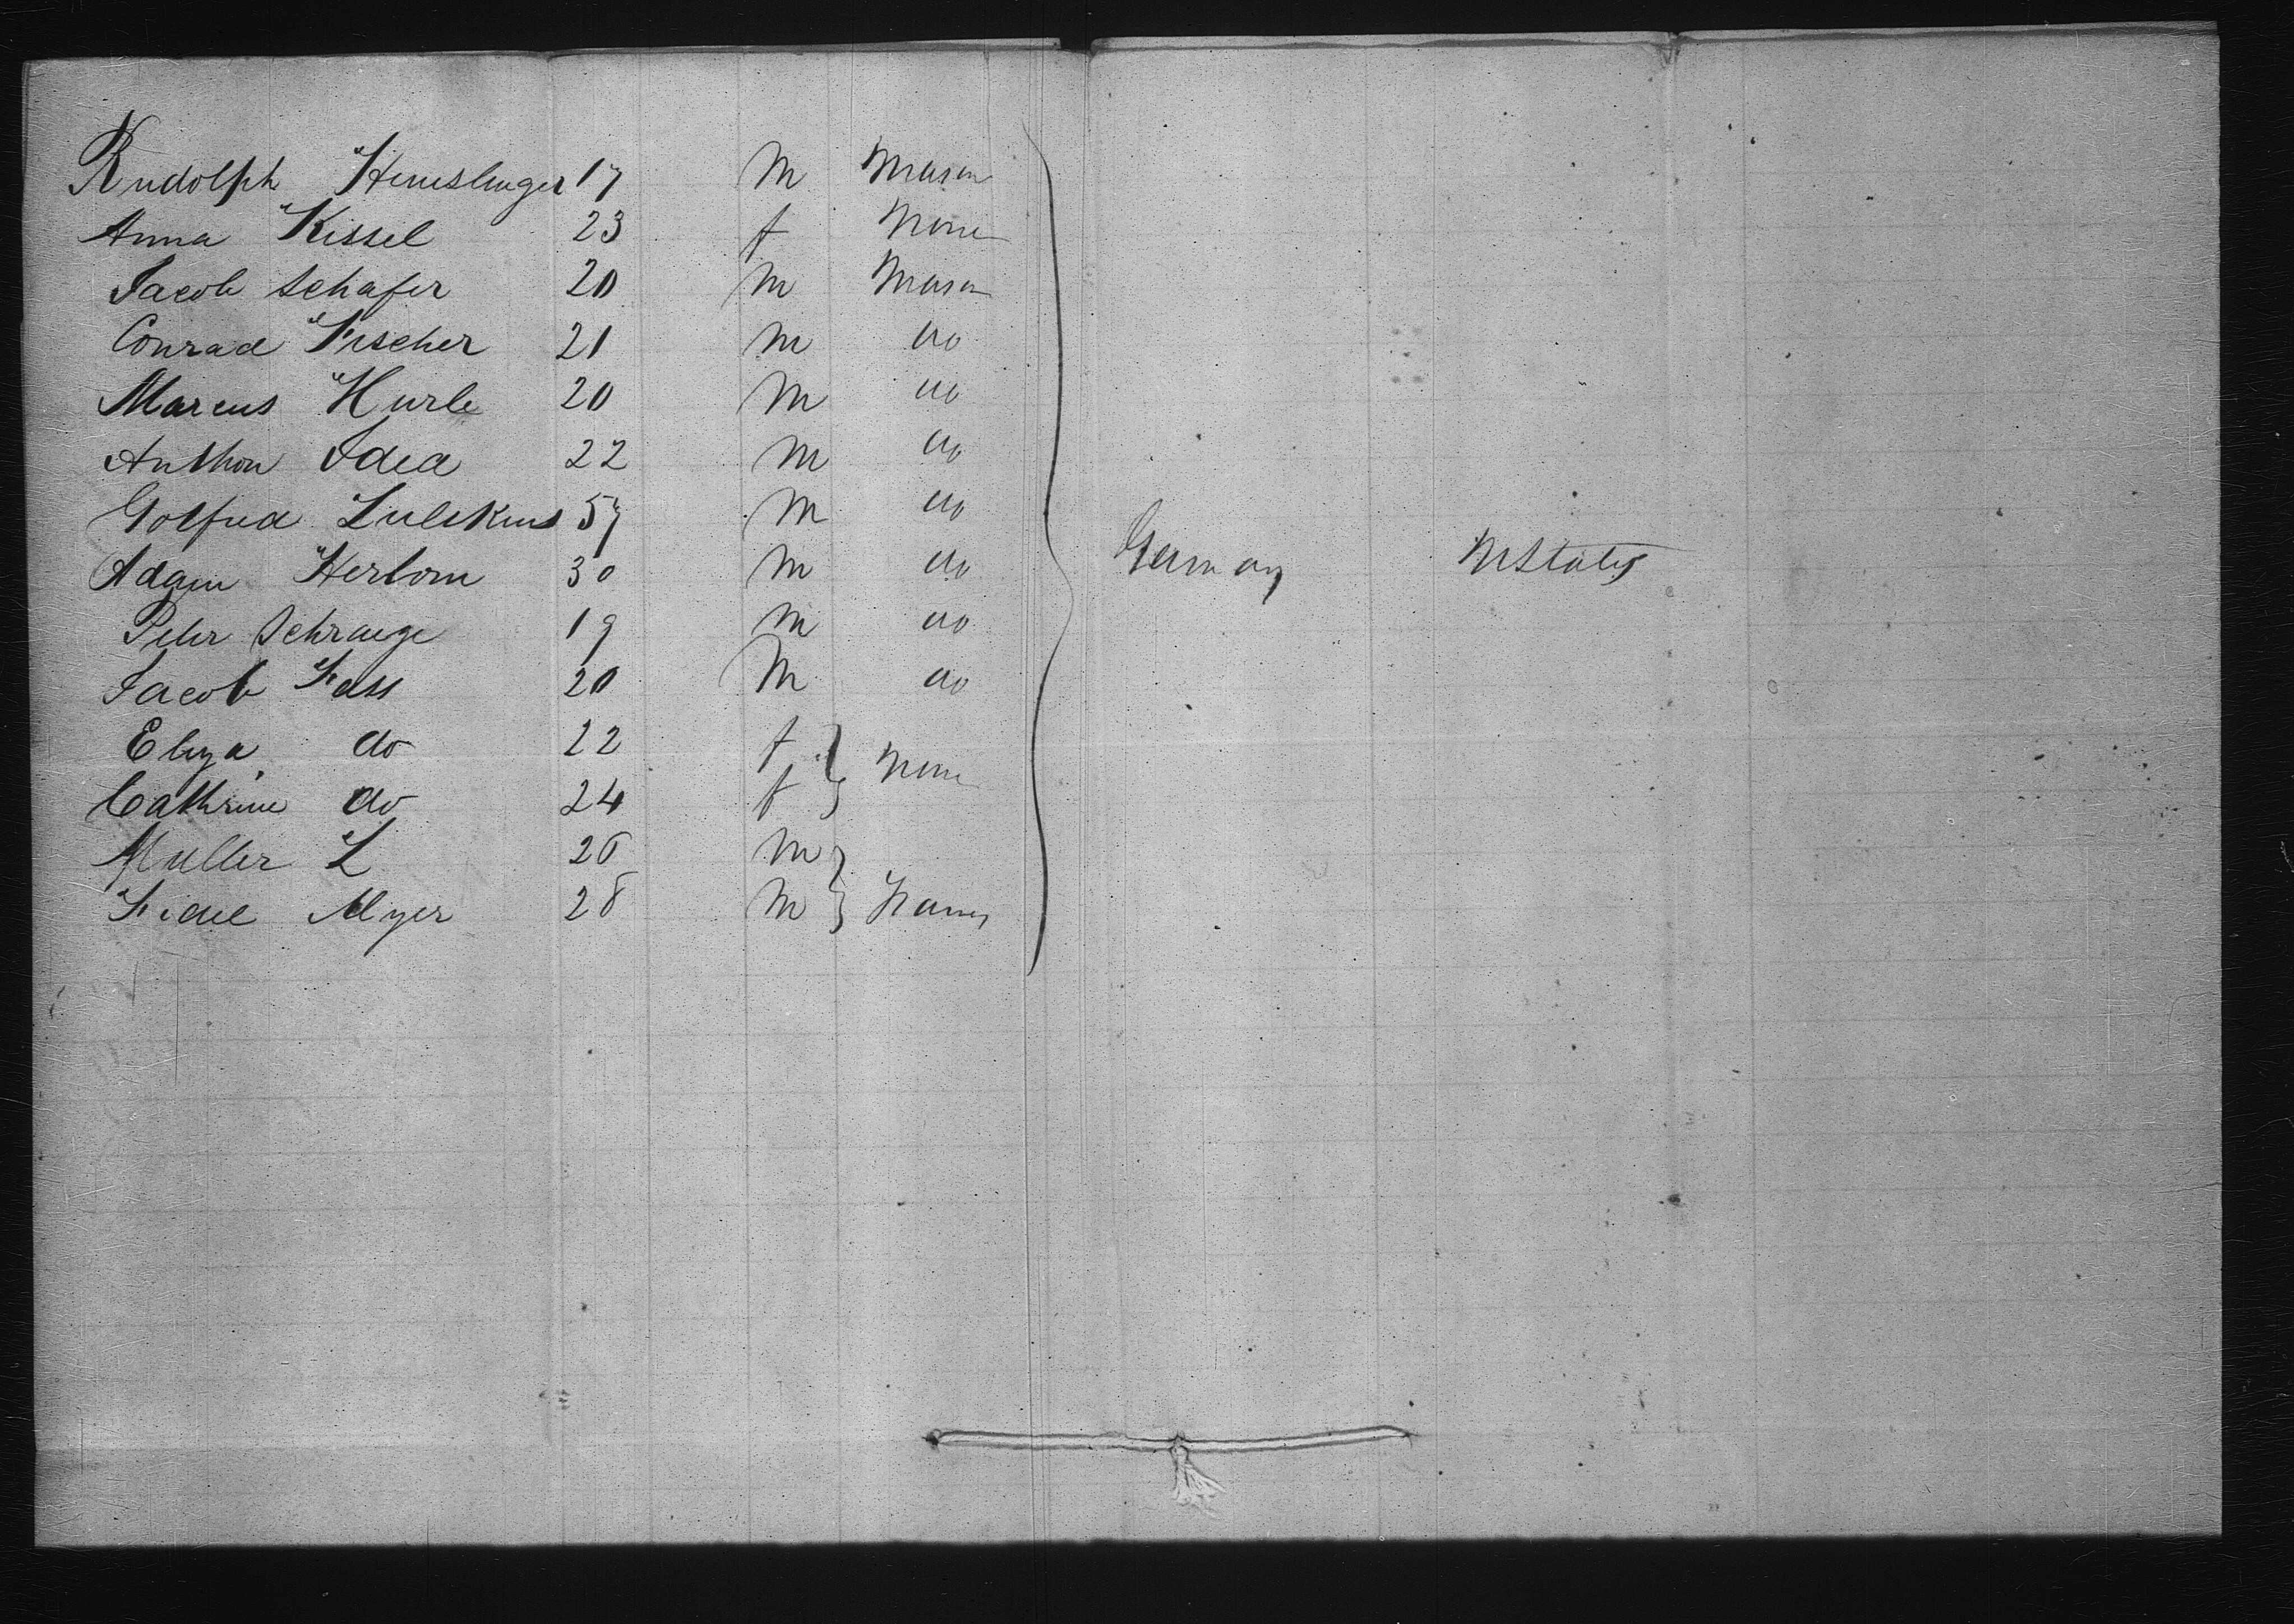 Rudolph 17 M Mason
Anna Kissel 23 f None
Jacob Schafer 20 M Mason
Conrad Fischer 21 M do
Marcus Hurle 20 M do
Anthon Idea 22 M do
57 M do
Adam Herborn 30 M do
Germany UStates
Peter Schrage 19 M do
Jacob Fass 20 M do
Eliza do 22 f
None
Cathrine do 24 f
Muller L 26 M
Fidel Myer 28 M